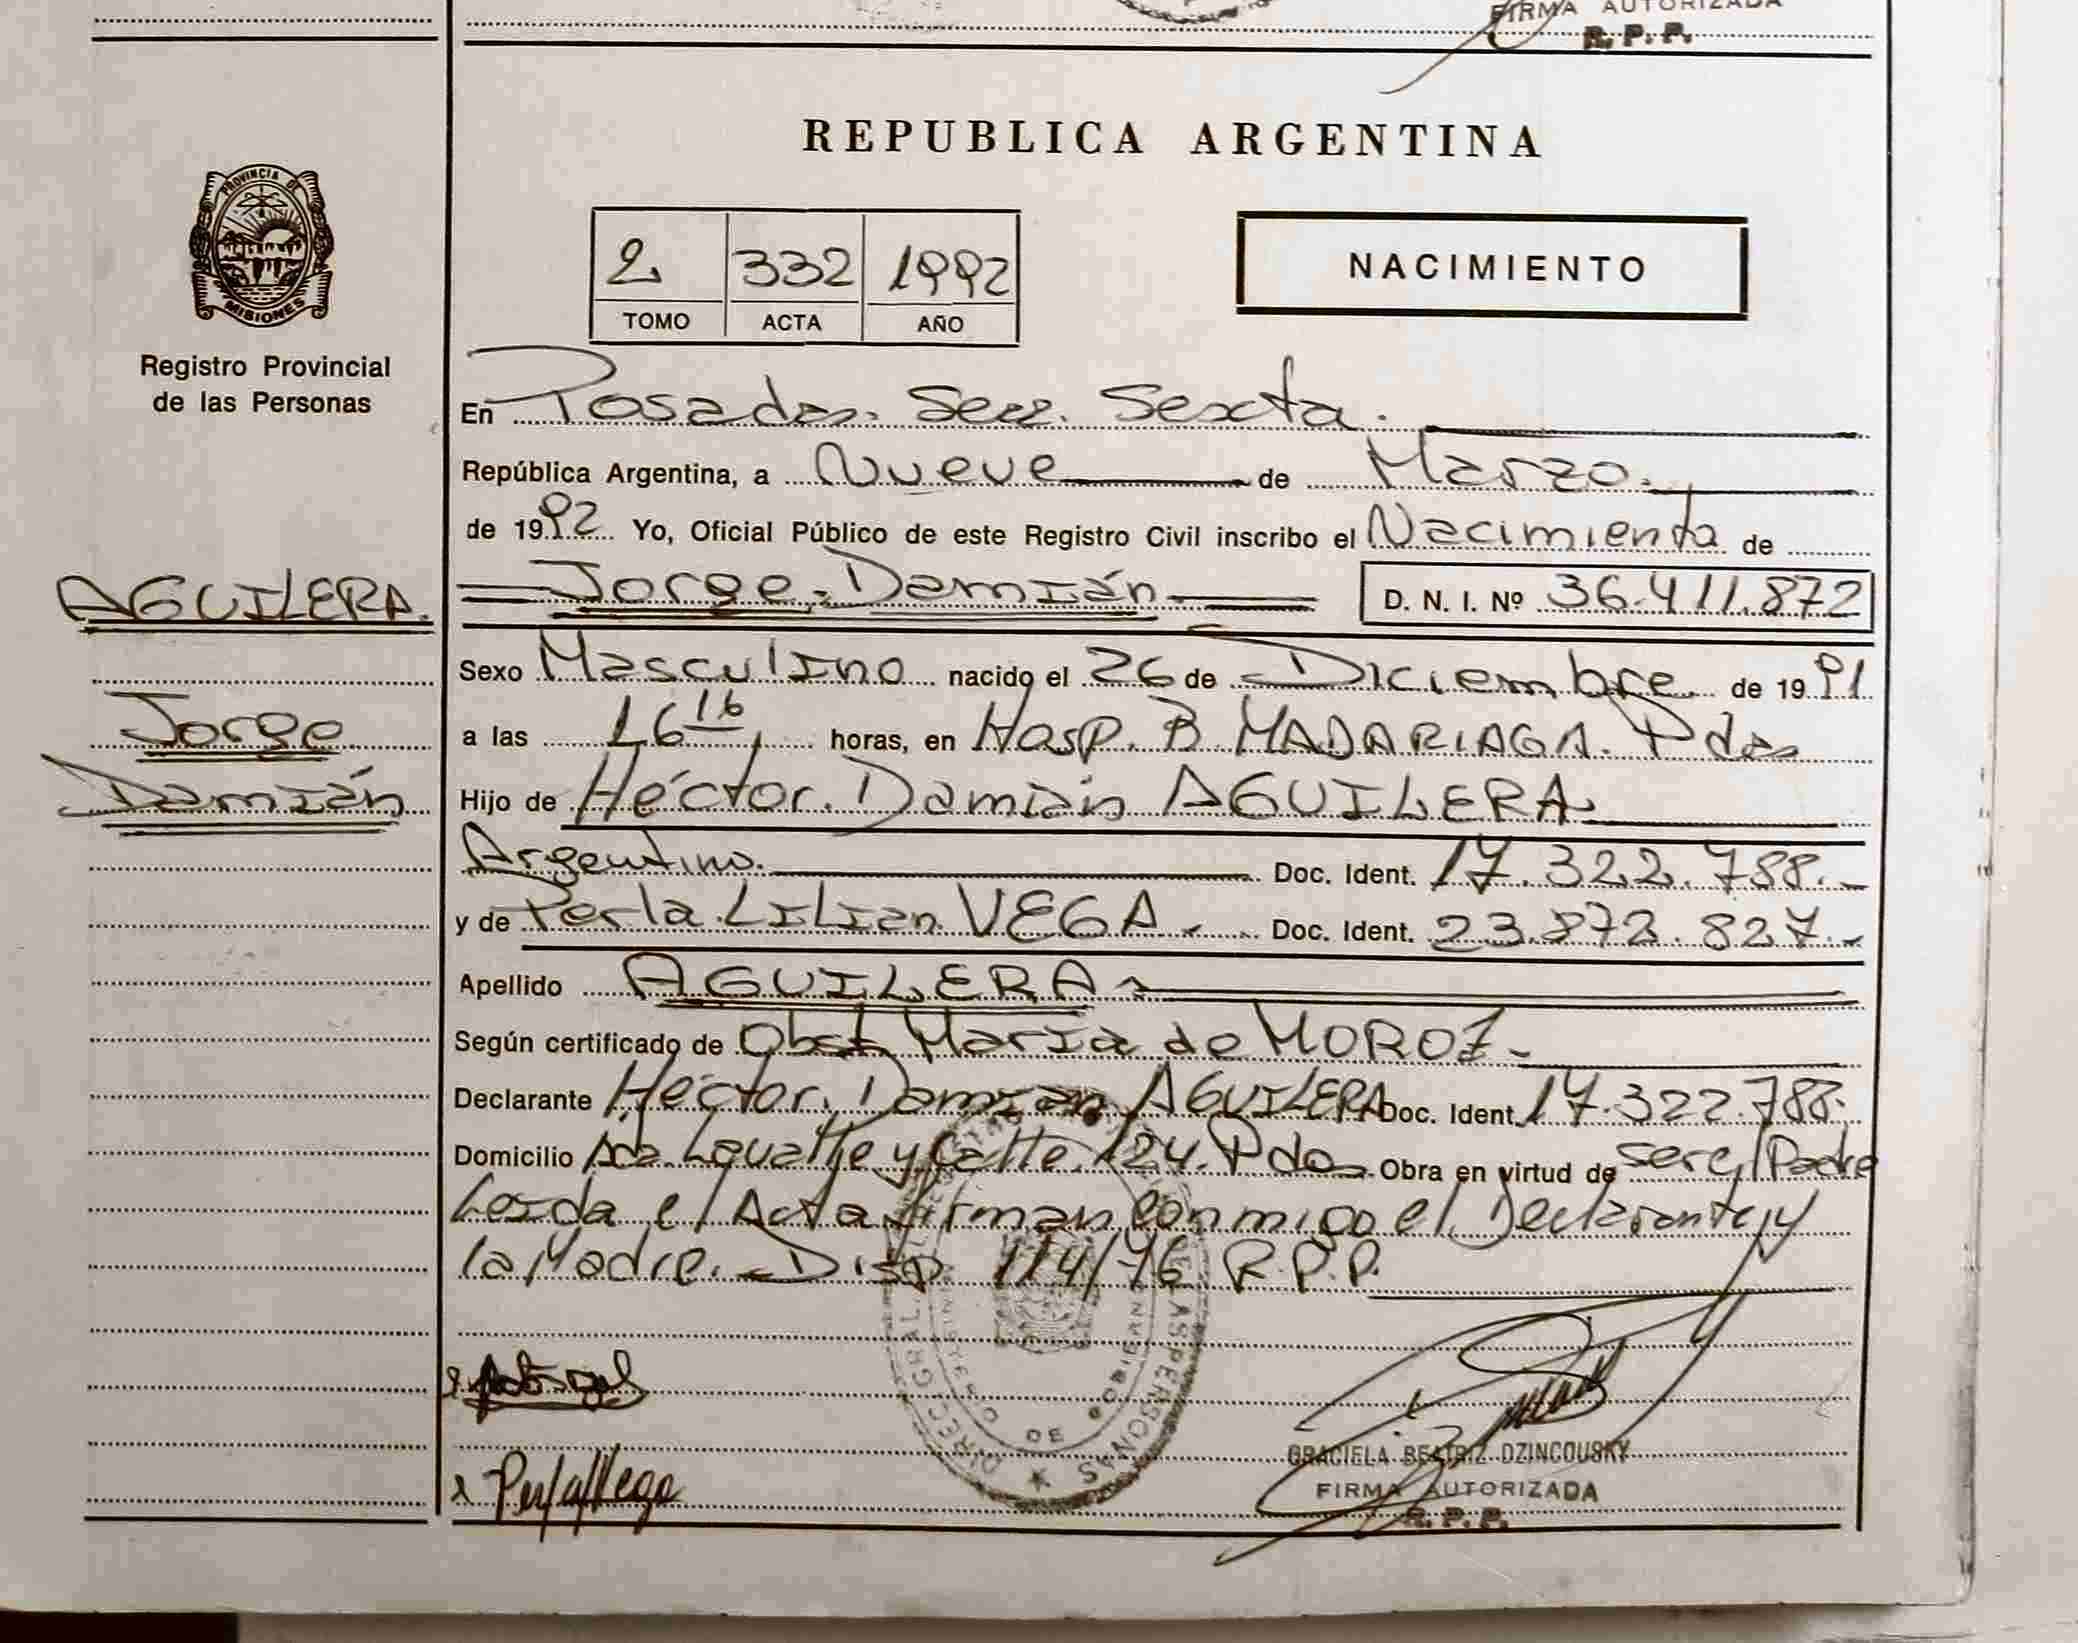 FIRMA AUTORIZADA
R. P. P.
REPUBLICA ARGENTINA
PROVINCIA DE
MISIONES
Registro Provincial
de las Personas
2 332 1992
TOMO ACTA AÑO
NACIMIENTO
En Posadas. Secc. Sexta.
República Argentina, a Nueve de Marzo.
de 1992 Yo, Oficial Público de este Registro Civil inscribo el Nacimiento de
Jorge Damián D. N. I. Nº 36.411.872
AGUILERA.
Jorge
Damián
Sexo Masculino nacido el 26 de Diciembre de 1991
a las 16 16 horas, en Hosp. R. MADARIAGA. Pdas
Hijo de Héctor Damián AGUILERA
Argentino. Doc. Ident. 17.322.788.-
y de Perla Lilian VEGA. Doc. Ident. 23.872.827.-
Apellido AGUILERA
Según certificado de Obst. María de MOROZ.-
Declarante Héctor Damián AGUILERA Doc. Ident. 17.322.788.
Domicilio y Calle 124. Pdas Obra en virtud de ser el Padre
Leída el Acta firman conmigo el Declarante y
la Madre. Disp. 114/76 R.P.P.
Perla Vega
GRACIELA BEATRIZ DZINCOUSKY
FIRMA AUTORIZADA
R. P. P.